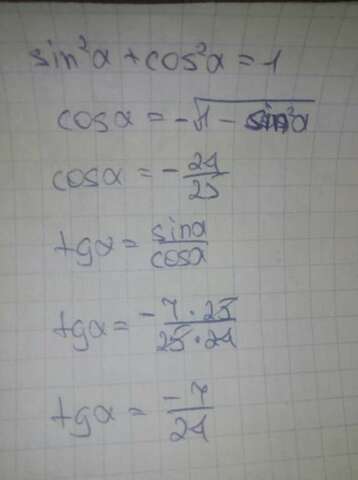 sin²α + cos²α = 1
cosα = -√1 - sin²α
cosα = - 24/25
tgα = sinα/cosα
tgα = - 7·25/25·24
tgα = -7/24